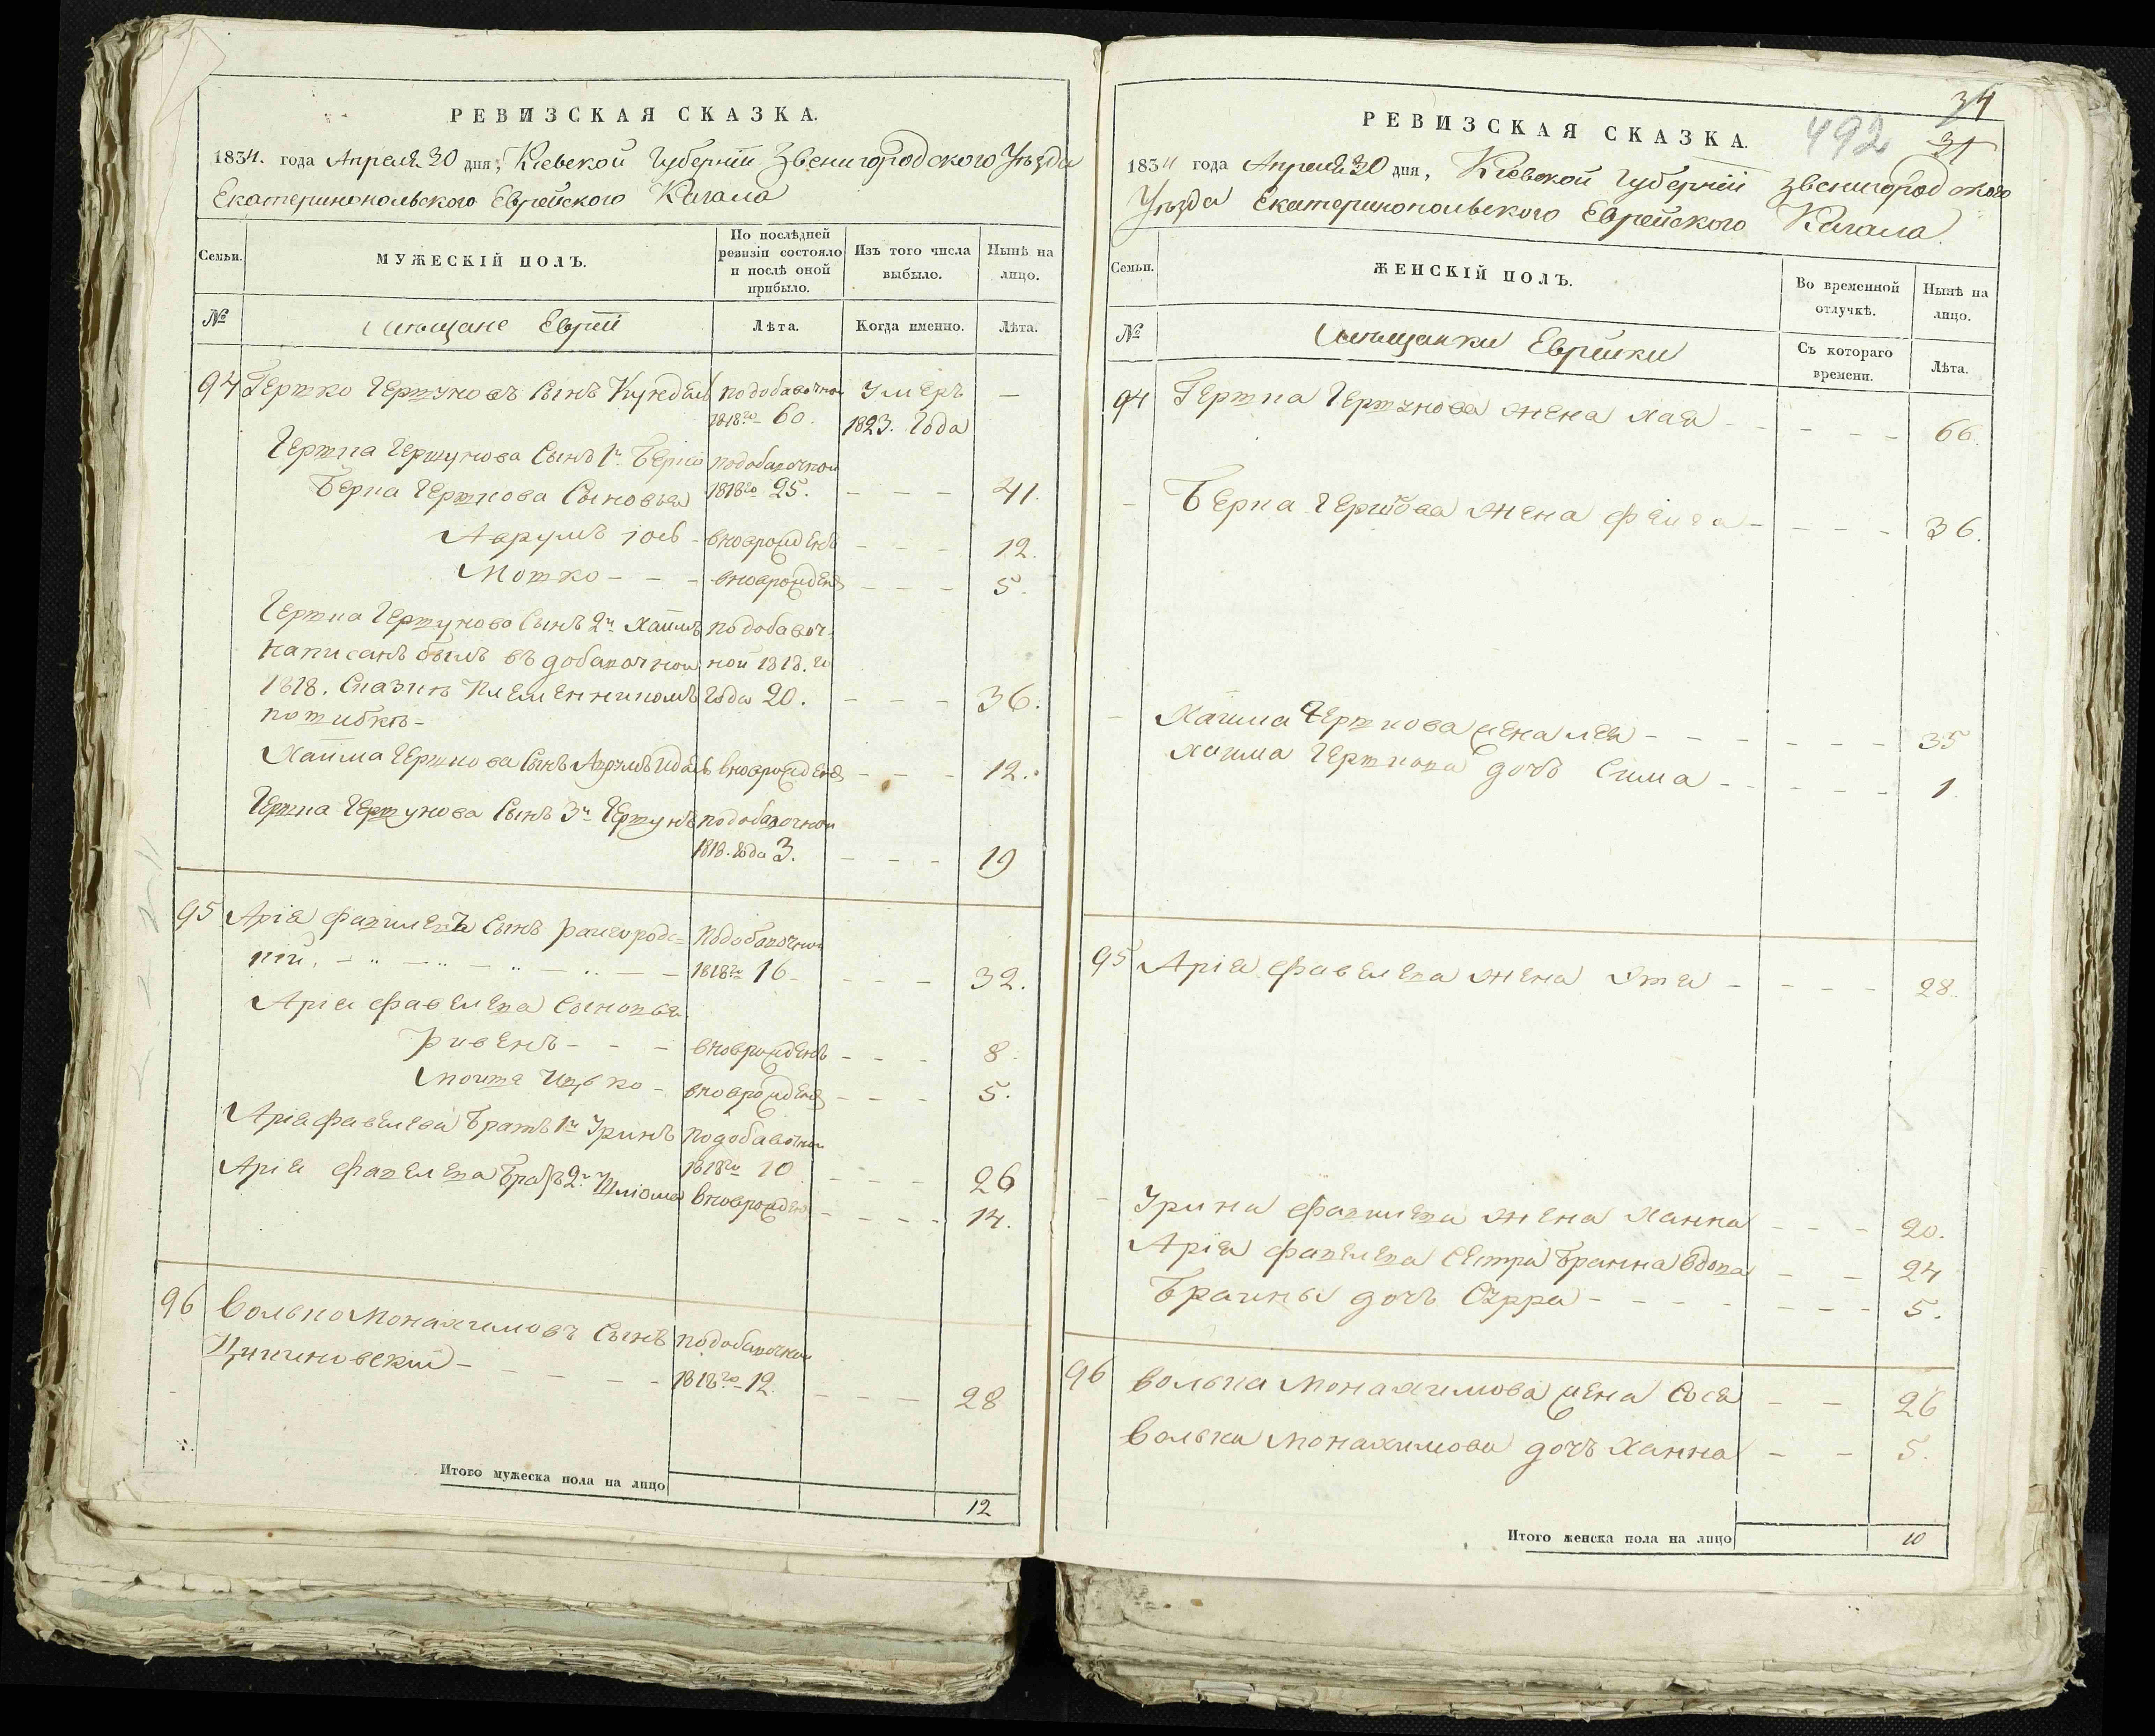 РЕВИЗСКАЯ СКАЗКА.
1834. года Апреля 30 дня, Кіевской Губерніи Звенигородского Уѣзда
Екатеринопольского Еврейского Кагала
Семьи.
МУЖЕСКІЙ ПОЛЪ.
По послѣдней
ревизіи состояло
и послѣ оной
прибыло.
Изъ того числа
выбыло.
Нынѣ на
лицо.
№
мещане Евреи
Лѣта.
Когда именно.
Лѣта.
94 Гершко Гершуновъ Сынъ подобавочной Умеръ —
1818го 60. 1823. Года
Гершка Гершунова Сынъ 1й Берко подобавочной
Берка Гершкова Сыновья 1818го 25. — — — 41.
Аврумъ Іось - вноврожденъ — — — 12.
Мотко - - - вноврожденъ — — — 5.
Гершка Гершунова Сынъ 2й Хаимъ подобавоч-
написанъ былъ въ добавочной ной 1818. го
1818. Сказкѣ Племенникомъ года 20. — — — 36.
пошибкѣ -
Хаима Гершкова Сынъ Аврумъ вноврожденъ — — — 12.
Гершка Гершунова Сынъ 3й Гершунъ подобавочной
1818. года 3. — — — 19
95 Арія Фавилевъ Сынъ Райгород- Подобавочной
кій. 1818го 16 - — — — 32.
Арія Фавелева Сыновья
Рувенъ - - - вноврожденъ — — — 8.
Мошя Ицко - вноврожденъ — — — 5.
Арія Фавелева Братъ 1й Уринъ подобавочной
1818го 10 — — — 26
Арія Фавелева Братъ 2й Шліома вноврожденъ — — — 14.
96 Волько Монахимовъ Сынъ подобавочной
1818го - 12. — — — 28
Итого мужеска пола на лицо
12
34
492
31
РЕВИЗСКАЯ СКАЗКА.
1834 года Апреля 30 дня, Кіевской Губерніи Звенигородского
Уѣзда Екатеринопольского Еврейского Кагала.
Семьи.
ЖЕНСКІЙ ПОЛЪ.
Во временной
отлучкѣ.
Нынѣ на
лицо.
№
мещанки Еврейки
Съ котораго
времени.
Лѣта.
94 Гершка Гершунова жена Хая - - - - - 66.
- Берка Гершкова жена Фейга - - - - 36.
- Хаима Гершкова жена Лея - - - - - - 35
Хаима Гершкова дочь Сима - - - - - 1.
95 Арія Фавелева жена Этя - - - - - 28.
- Урина Фавилева жена Ханна - - - 20.
Арія Фавелева Сестра Браина вдова - - 24
Браины дочь Сурра - - - - - - - 5.
96 Волька Монахимова жена Сося - - 26
Волька Монахимова дочь Ханна - - 5.
Итого женска пола на лицо
10